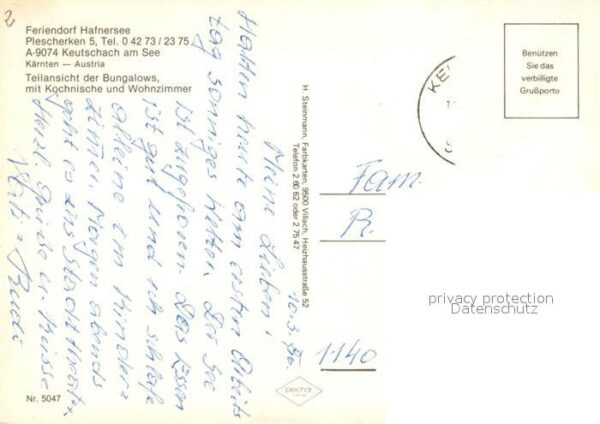 2
Feriendorf Hafnersee
Plescherken 5, Tel. 0 42 73 / 23 75
A-9074 Keutschach am See
Kärnten — Austria
Teilansicht der Bungalows,
mit Kochnische und Wohnzimmer
Meine Lieben! 10.3.86.
Hatten heute am ersten Arbeits
tag sonniges Wetter. Der See
ist zugefroren. Das Essen
ist gut und ich schlafe
alleine im Kinder=
zimmer. Morgen abends
geht es ins Stadttheater.
Herzl. Grüße u. Küsse
Rudi
Nr. 5047
H. Steinmann, Farbkarten, 9500 Villach, Heizhausstraße 52
Telefon 2 60 62 oder 2 75 47
pechar
KE
Benützen
Sie das
verbilligte
Grußporto
Fam.
R.
1140
privacy protection
Datenschutz